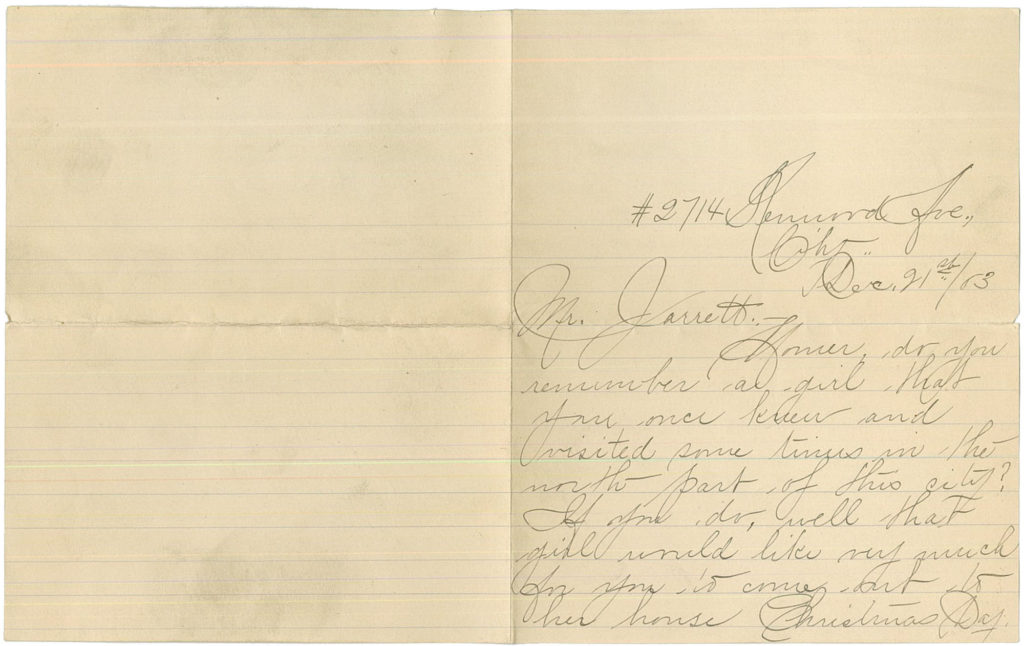 #2714 Kenwood Ave.,
City..
Dec. 21st/03
Mr. Jarrett:-
Homer, do you
remember a girl that
you once knew and
visited some times in the
north part of this city?
If you do, well that
girl would like very much
for you to come out to
her house Christmas Day.